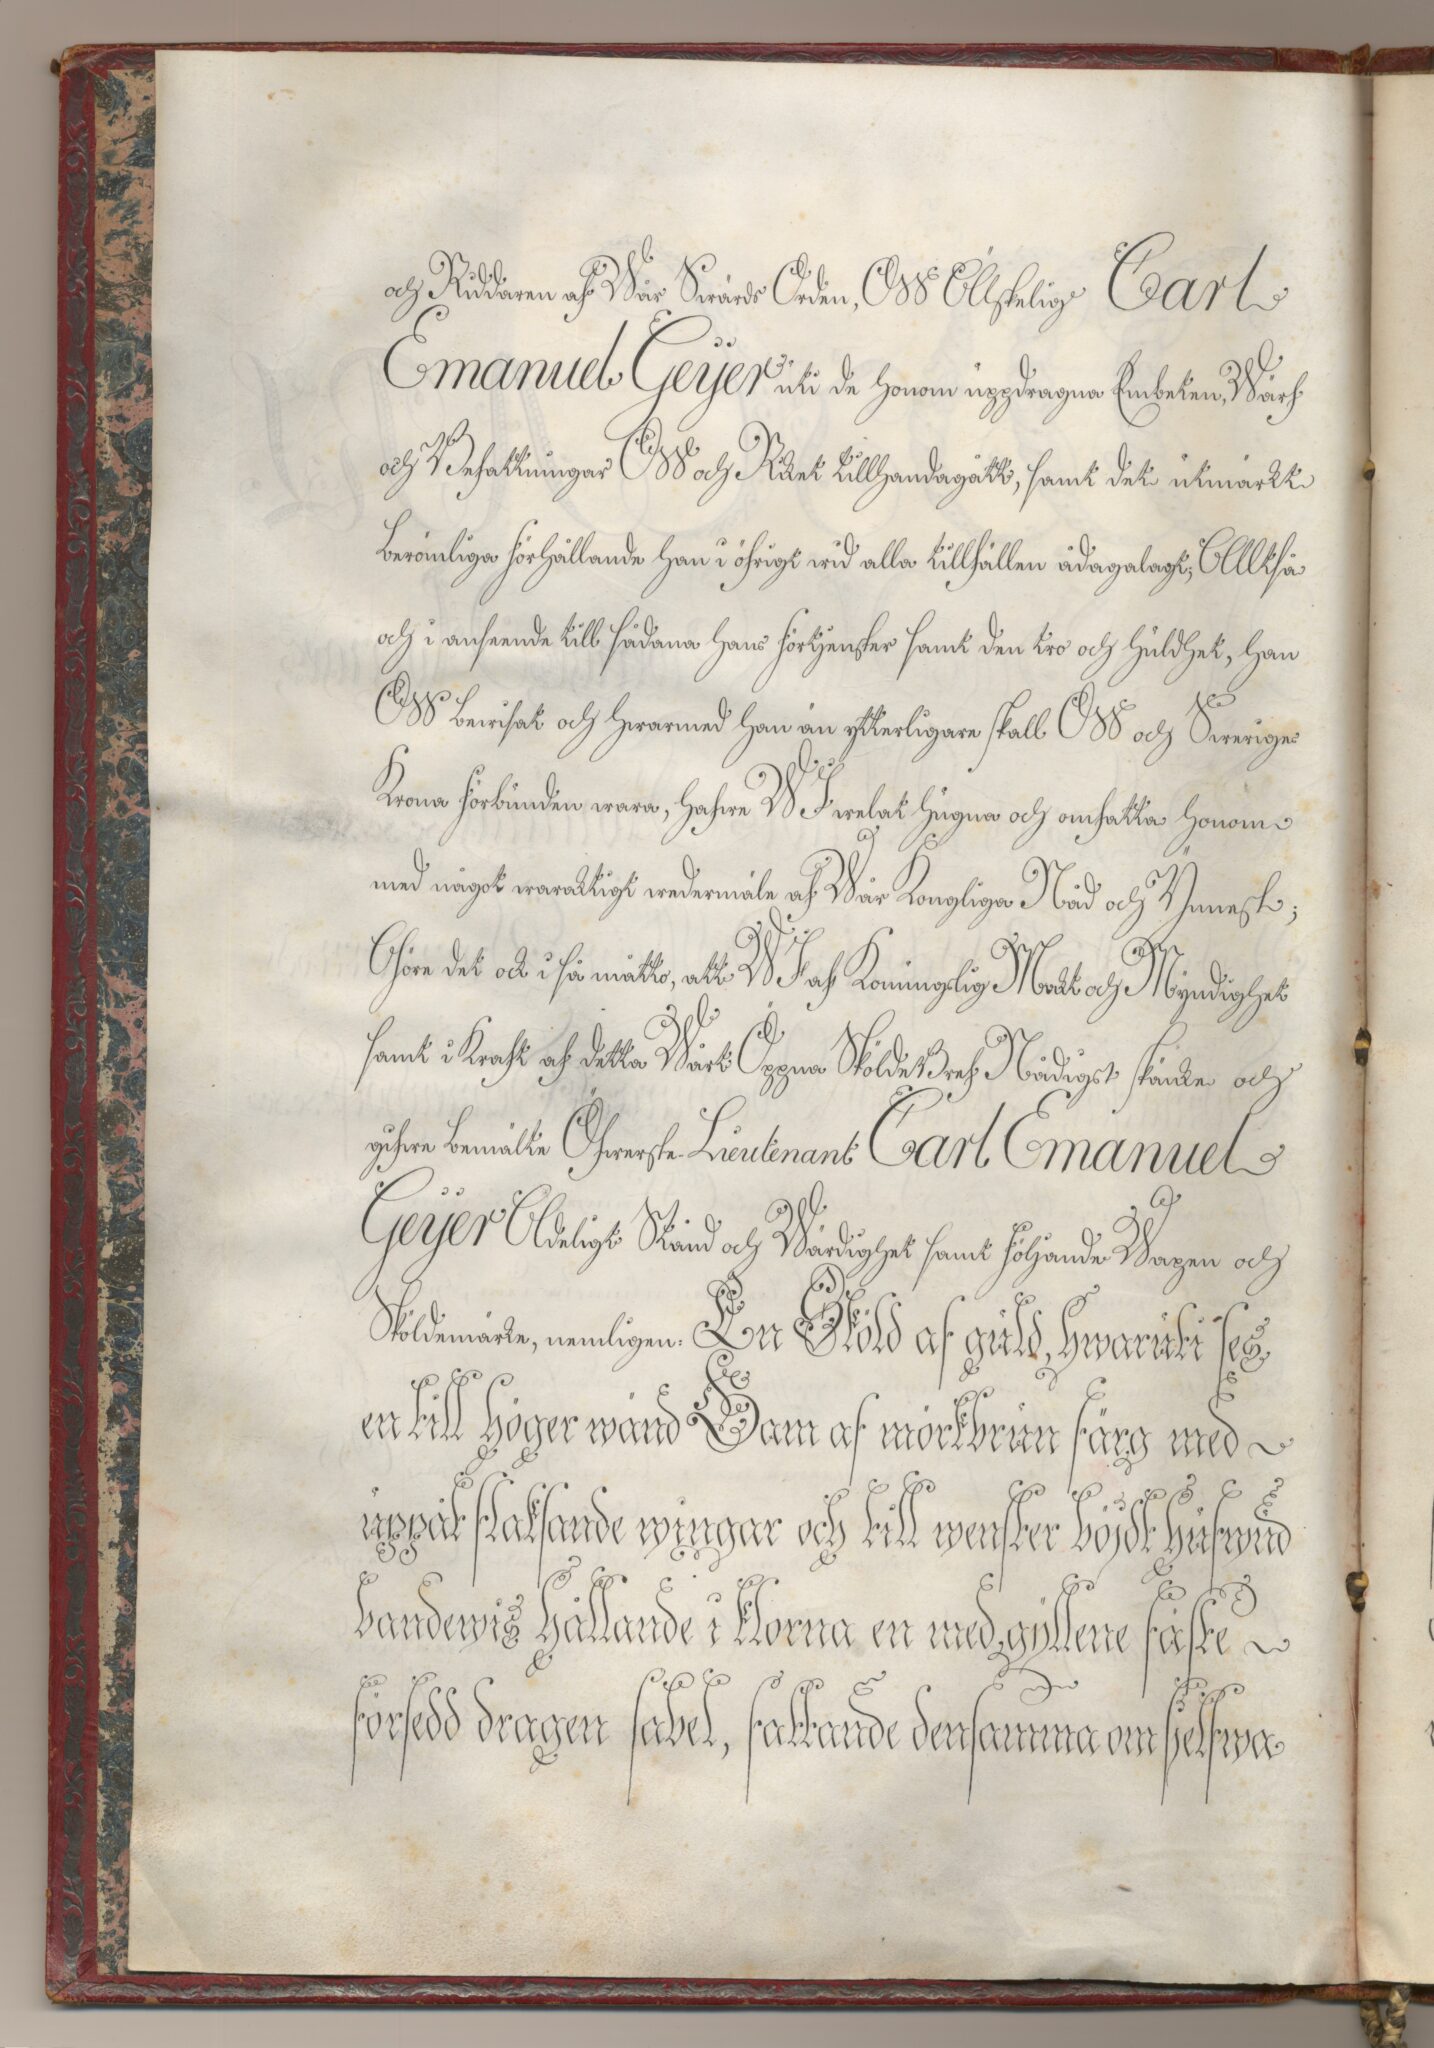 och Riddaren af Wår Swärds Orden, OSS Ällskelig Carl
Emanuel Geijer uti de honom updragna Embeten, Wärf
och Befattningar OSS och Riket tillhandagått, samt det utmärkt
berömliga förhållande han i öfrigt wid alla tillfällen ådagalagt; Alltså
och i anseende till sådana hans förtjenster samt den tro och huldhet, han
OSS bewisat och hwarmed han än ytterligare skall OSS och Sweriges
Krona förbunden wara, hafwe WI welat hugna och omfatta honom
med något waracktigt wedermäle af Wår Kongliga Nåd och Ynnest;
Giöre det ock i så måtto, att WI af Konungslig Mackt och Myndighet
samt i Kraft af detta Wårt Öppna SköldeBref Nådigst skänke och
gifwe bemälte Öfwerste-Lieutenant Carl Emanuel
Geijer Adeligt Stånd och Wärdighet samt följande Wapen och
Sköldemärke, nemligen: En Sköld af guld, hwaruti ses
en till höger wänd Gam af mörkbrun färg med
uppåt flaksande wingar och till wenster böjdt hufwud
bandewis hållande i klorna en med gyllene fäste
försedd dragen sabel, fattande densamma om sjelfwa